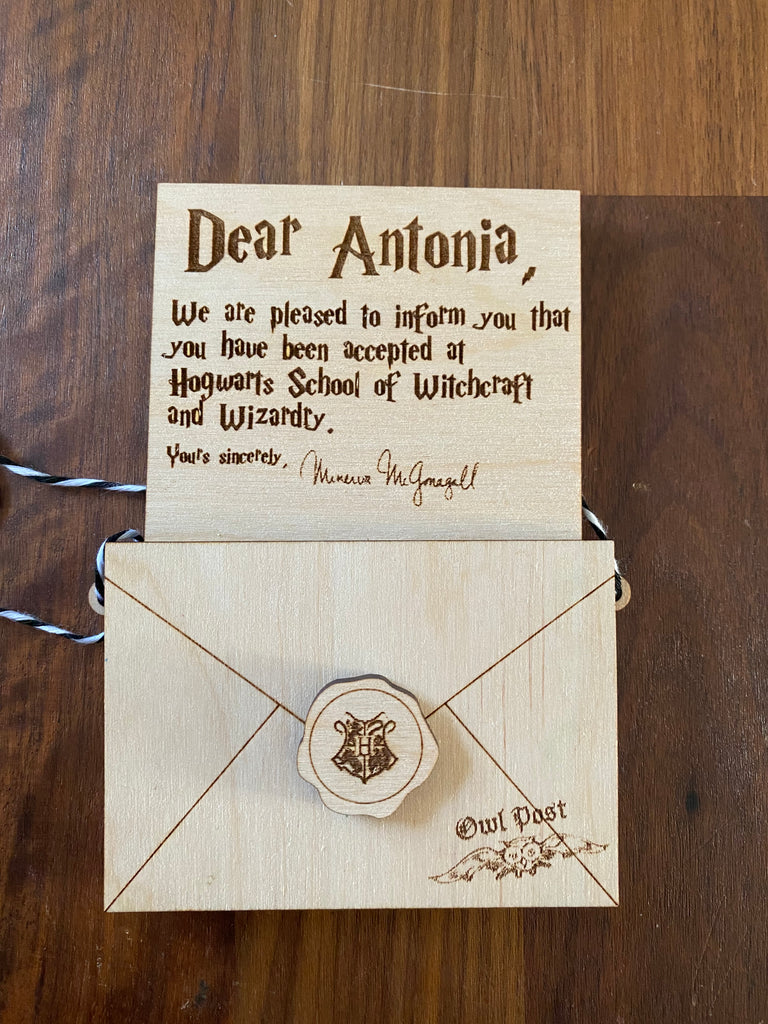 Dear Antonia,
We are pleased to inform you that
you have been accepted at
Hogwarts School of Witchcraft
and Wizardry.
Yours sincerely, Minerva McGonagall
H
Owl Post